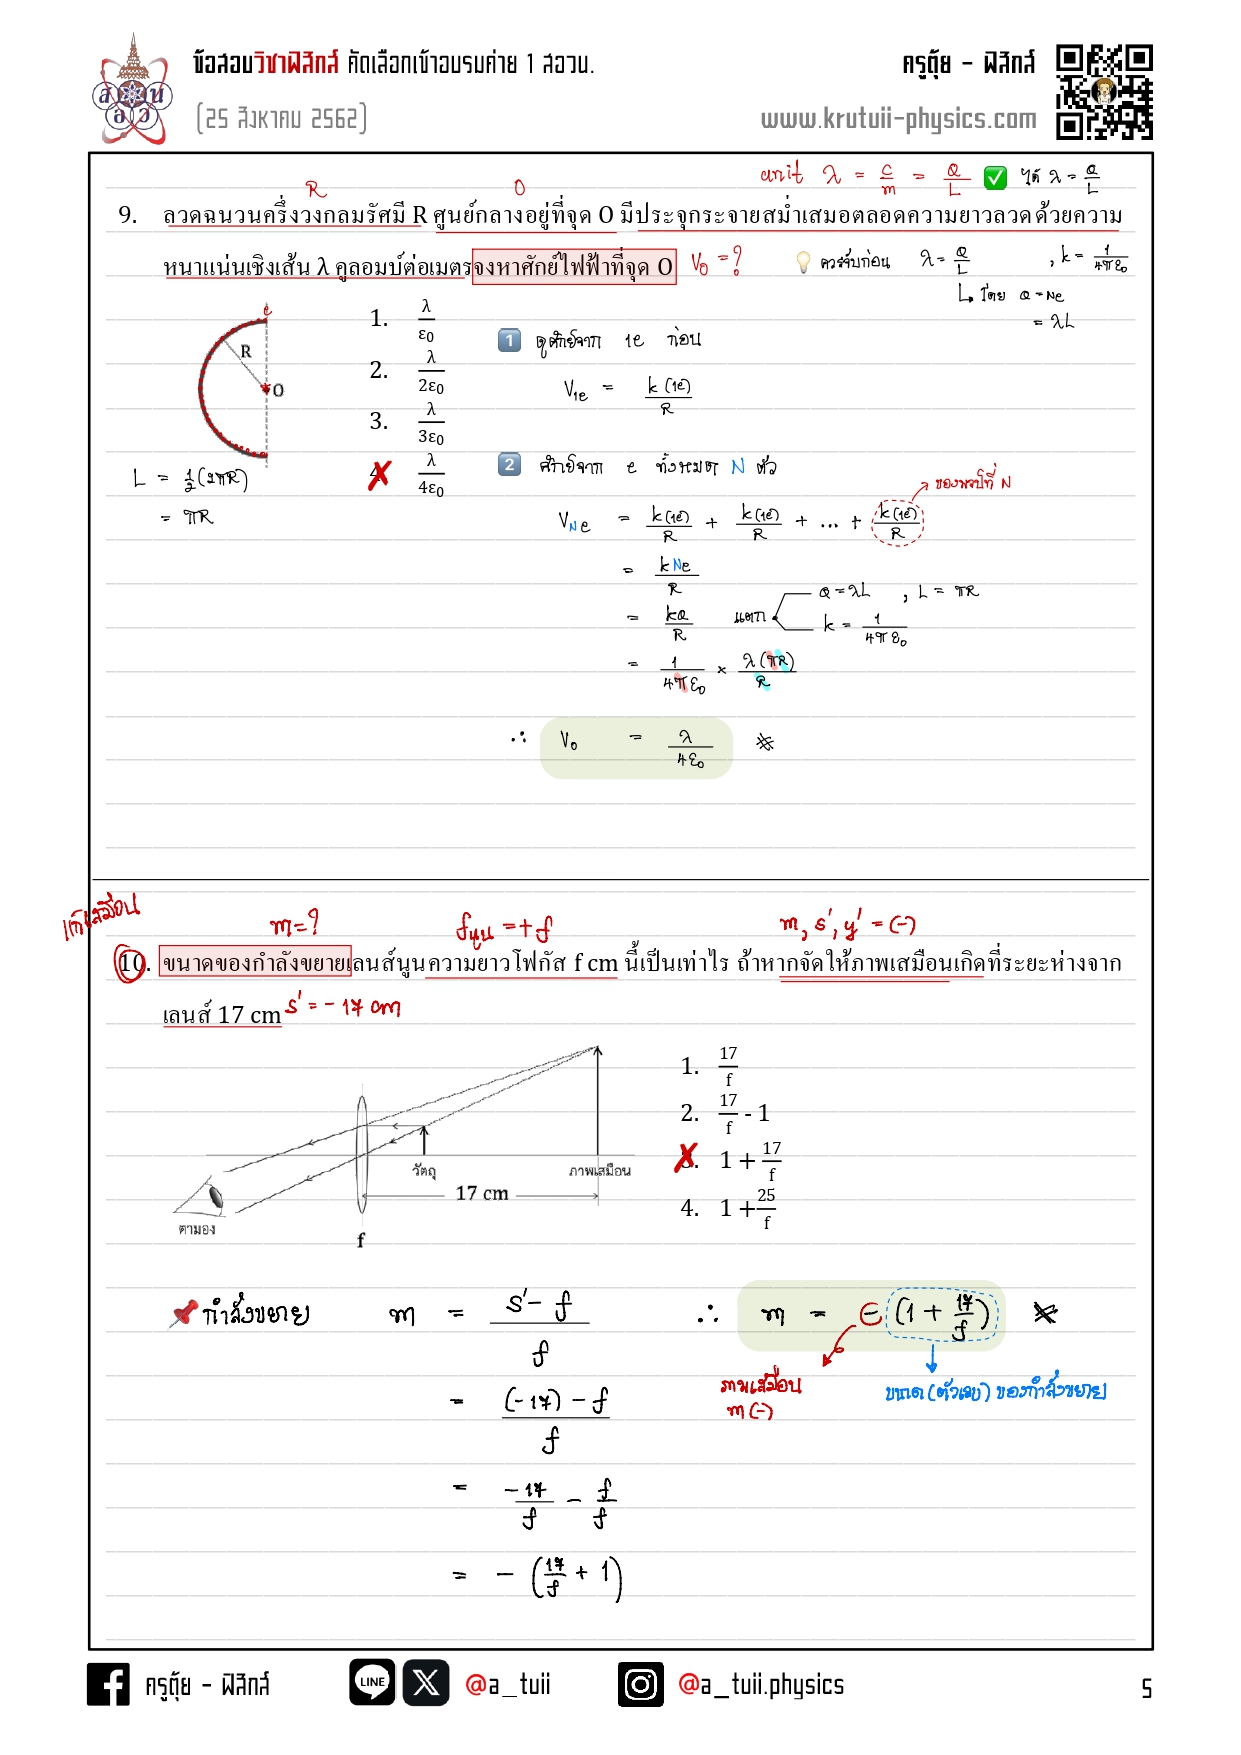 ข้อสอบวิชาฟิสิกส์ คัดเลือกเข้าอบรมค่าย 1 สอวน.
(25 สิงหาคม 2562)
ครูตุ้ย - ฟิสิกส์
www.krutuii-physics.com
สอวน
unit λ = C/m = Q/L ✅ ได้ λ = Q/L
R
O
9. ลวดฉนวนครึ่งวงกลมรัศมี R ศูนย์กลางอยู่ที่จุด O มีประจุกระจายสม่ำเสมอตลอดความยาวลวดด้วยความ
หนาแน่นเชิงเส้น λ คูลอมบ์ต่อเมตรจงหาศักย์ไฟฟ้าที่จุด O V₀ = ?
💡 ควรจับก่อน λ = Q/L , k = 1/4πε₀
โดย Q = Ne
= λL
e
R
O
1. λ/ε₀
2. λ/2ε₀
3. λ/3ε₀
4. λ/4ε₀
L = 1/2(2πR)
= πR
1 ดูศักย์จาก 1e ก่อน
V₁e = k(1e)/R
2 ศักย์จาก e ทั้งหมด N ตัว
ของพจน์ที่ N
VNe = k(1e)/R + k(1e)/R + ... + k(1e)/R
= kNe/R
= kQ/R แตก Q = λL , L = πR
k = 1/4πε₀
= 1/4πε₀ × λ(πR)/R
∴ V₀ = λ/4ε₀ ※
m = ?
fนูน = +f
m, s', y' = (-)
10. ขนาดของกำลังขยายเลนส์นูนความยาวโฟกัส f cm นี้เป็นเท่าไร ถ้าหากจัดให้ภาพเสมือนเกิดที่ระยะห่างจาก
เลนส์ 17 cm s' = -17 cm
วัตถุ
ภาพเสมือน
17 cm
ตามอง
f
1. 17/f
2. 17/f - 1
3. 1 + 17/f
4. 1 + 25/f
📌 กำลังขยาย m = s' - f/f
= (-17) - f/f
= -17/f - f/f
= - (17/f + 1)
∴ m = - (1 + 17/f) ※
ภาพเสมือน
m (-)
ขนาด (ตัวเลข) ของกำลังขยาย
ครูตุ้ย - ฟิสิกส์
LINE
@a_tuii
@a_tuii.physics
5